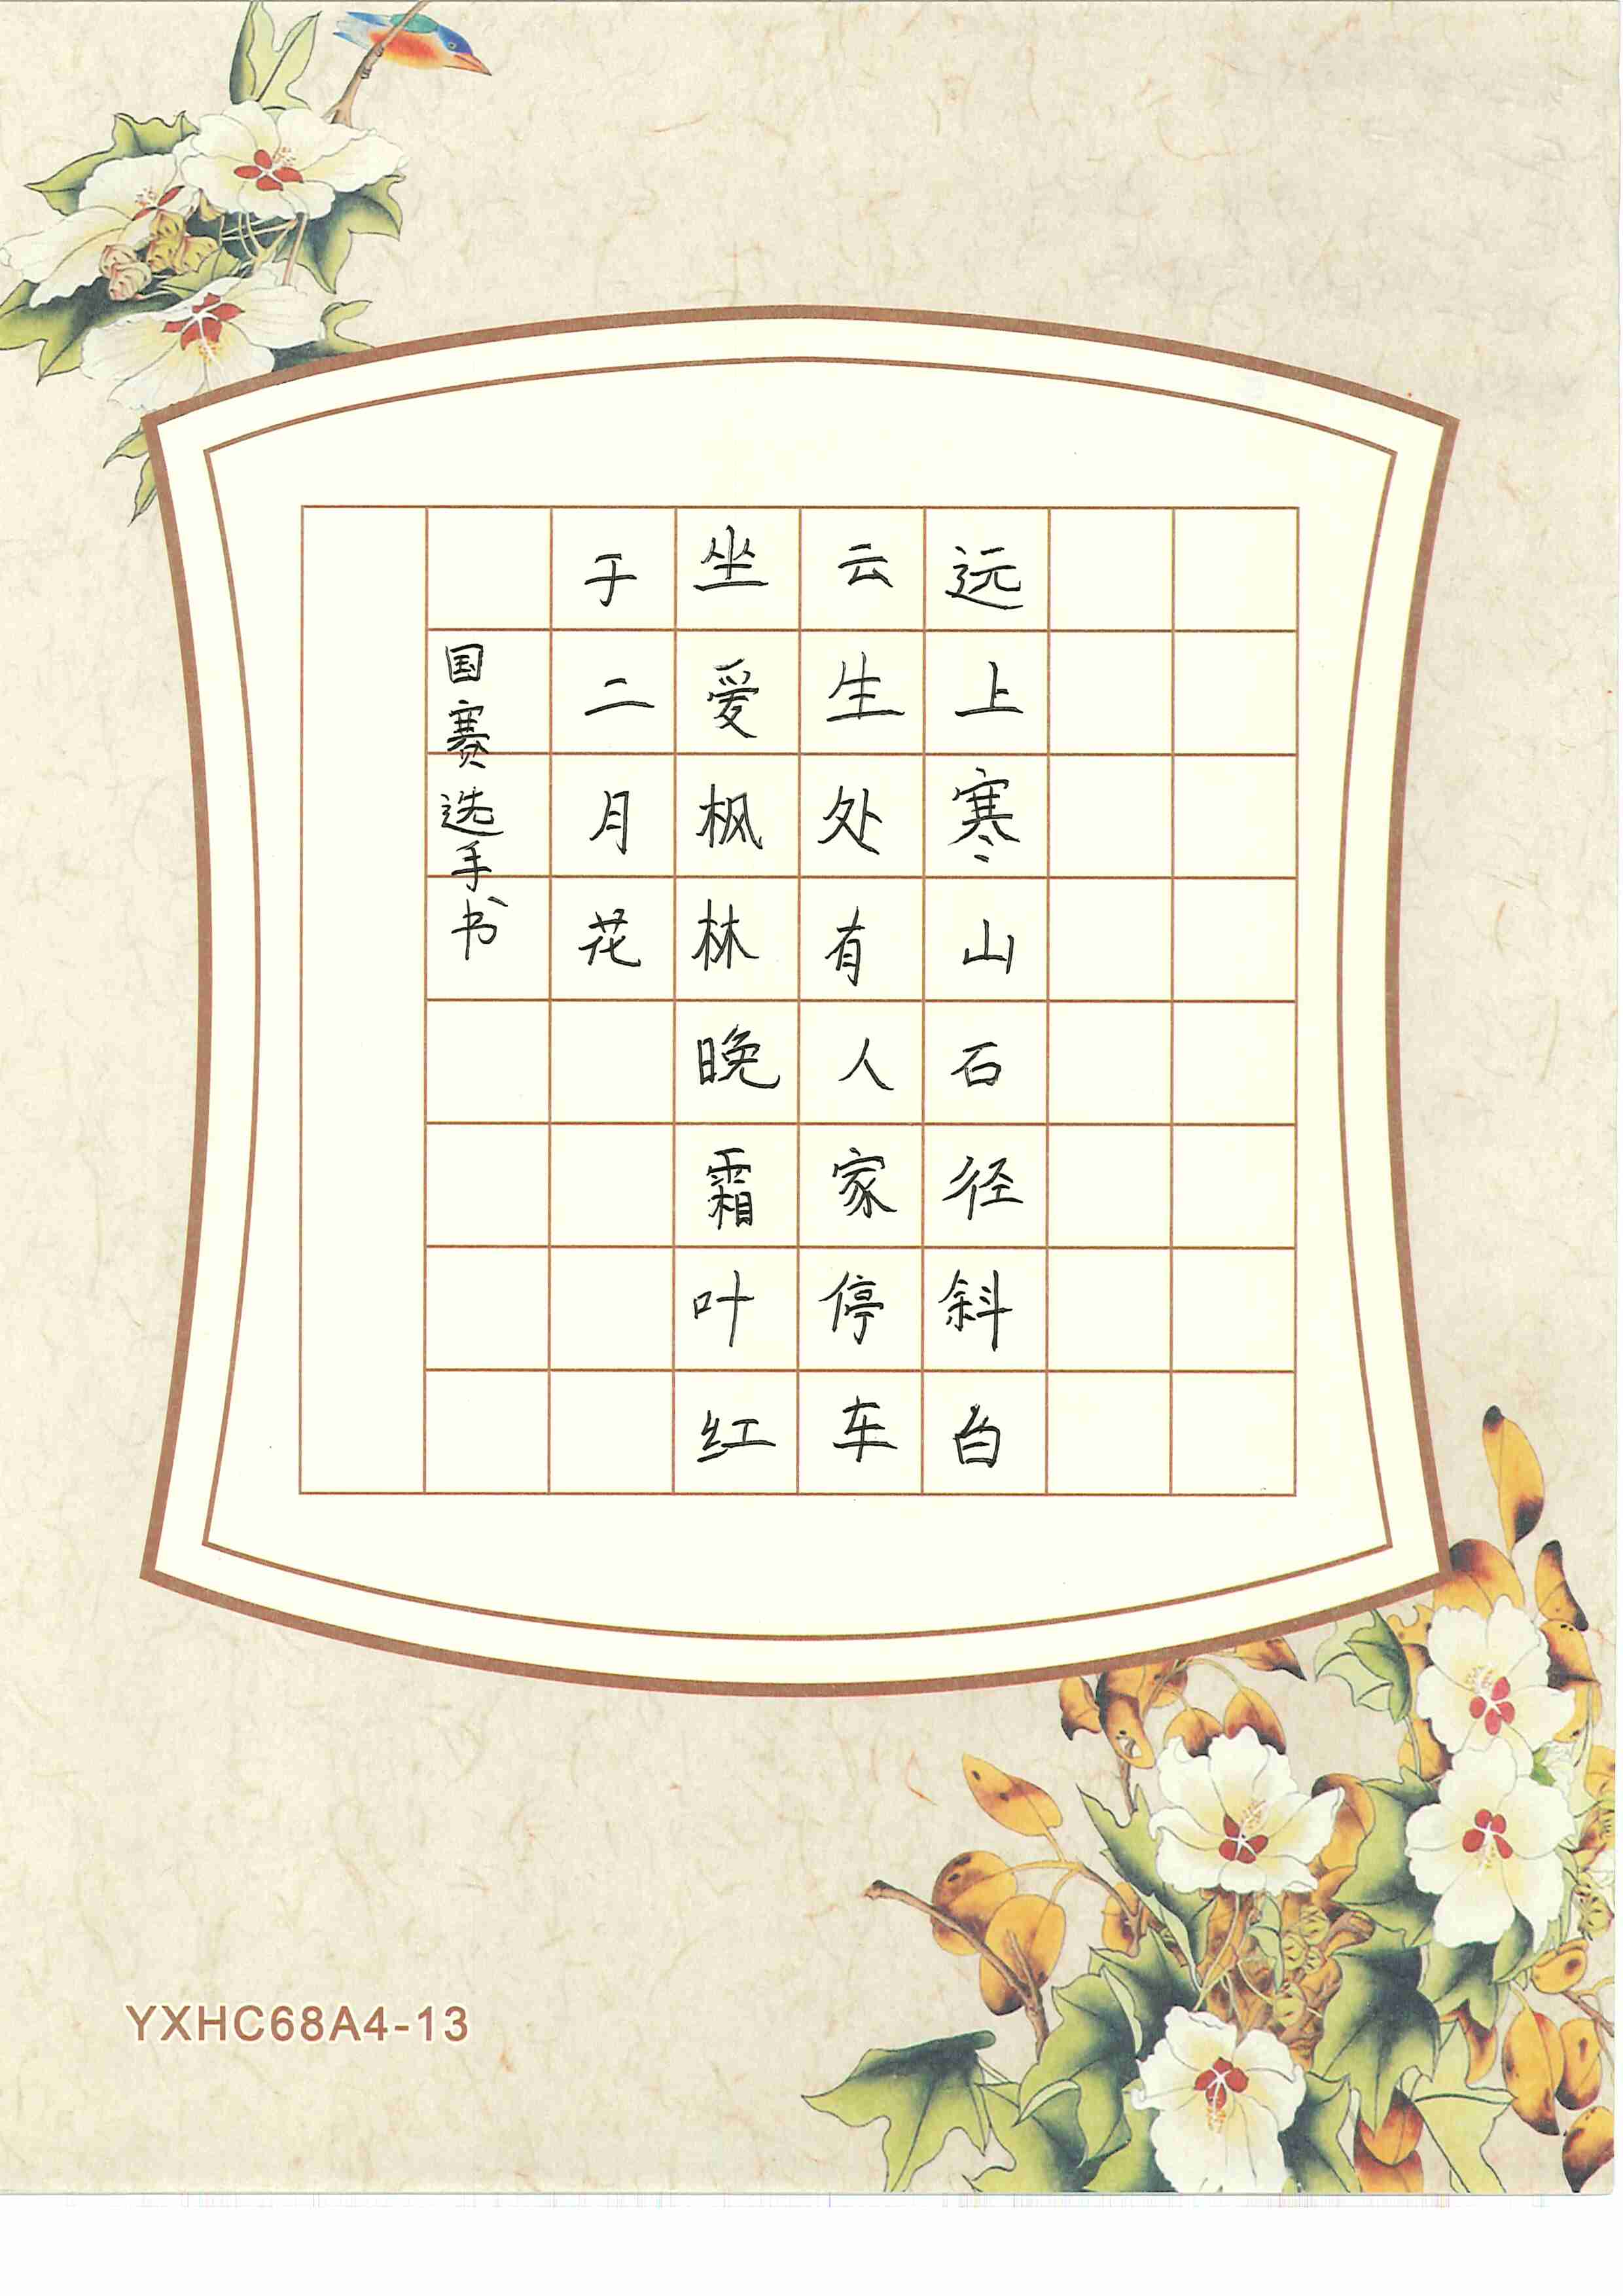 远上寒山石径斜白
云生处有人家停车
坐爱枫林晚霜叶红
于二月花
国赛选手书
YXHC68A4-13